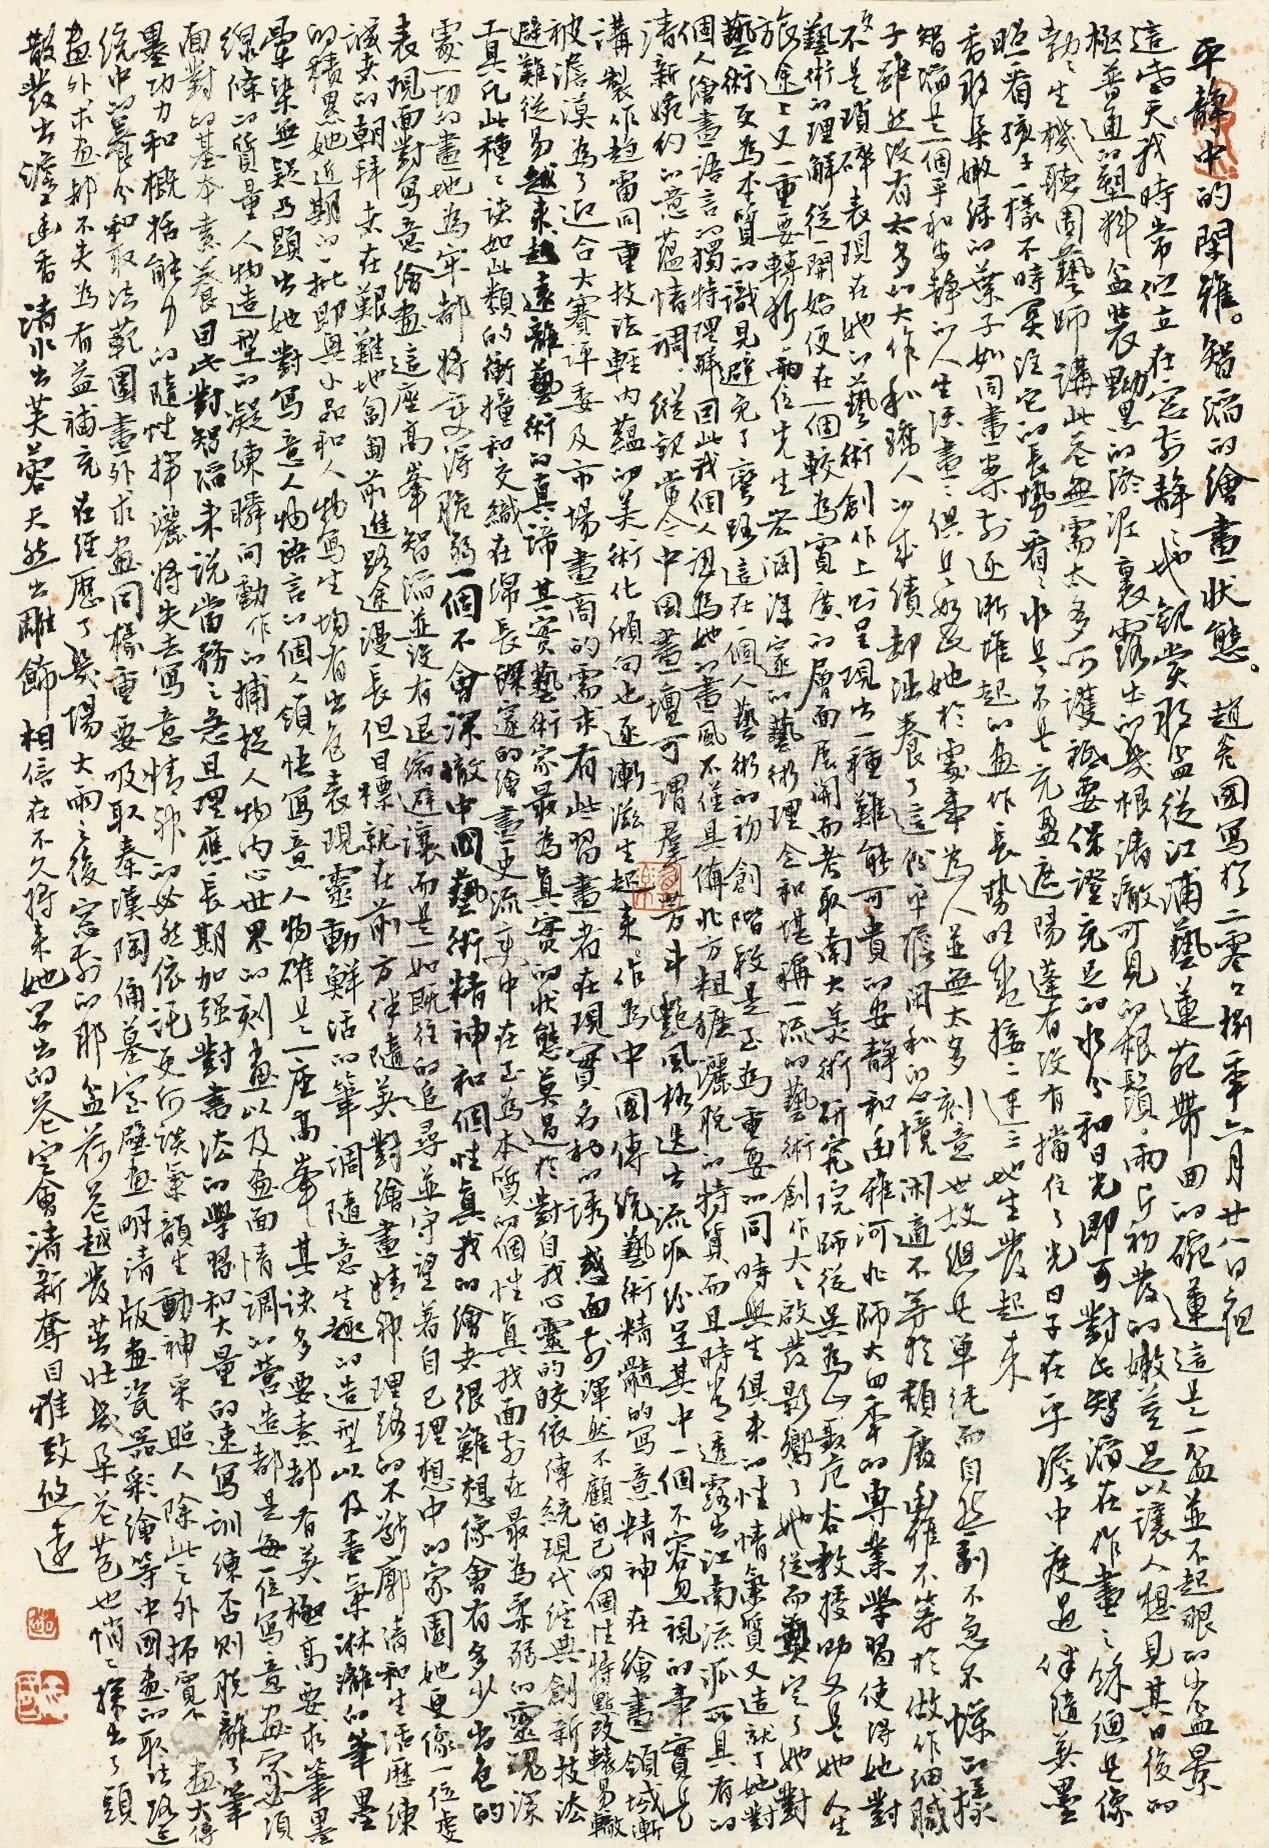 平靜中的閑雅。智滔的繪畫狀態。趙光國寫於二零零捌年六月廿八日夜
這些天我時常佇立在窗前靜靜地觀賞那盆從江浦藝蓮苑帶回的碗蓮這是一盆並不起眼的小盆景
極普通的塑料盆裝黝黑的淤泥裏露出的幾根清澈可見的根鬚兩片初發的嫩芽足以讓人想見其日後的
勃勃生機聽園藝師講此花無需太多呵護衹要保證充足的水分和日光即可對此智滔在作畫之餘總是像
照看孩子一樣不時關注它的長勢看看水是不是充盈遮陽蓬有沒有擋住了光日子在平澹中度過伴隨着墨
香那朵嫩綠的葉子如同畫案前逐漸堆起的畫作長勢旺盛接二連三地生發起來
智滔是一個平和安靜的人生活畫畫俱是如此她於處事為人並無太多刻意世故總是單純而自然到不急不慌的樣
子雖然沒有太多的大作和驕人的成績却涵養了這份平澹閑和的心境閑適不等於頹廢幽雅不等於做作細膩
不是瑣碎表現在她的藝術創作上則呈現出一種難能可貴的安靜和幽雅河北師大四年的專業學習使得她對
藝術的理解從一開始便在一個較為寬廣的層面展開而考取南大美術研究院師從吳為山 范谷教授助又是她人生
旅途上又一重要轉折兩位先生宏濶深邃的藝術理念和堪稱一流的藝術創作大大啟發影響了她從而奠定了她對
藝術更為本質的識見避免了彎路這在一個人藝術的初創階段是至為重要的同時與生俱來的性情氣質又造就了她對
個人繪畫語言的獨特理解因此我個人認為她的畫風不僅具備北方粗獷灑脫的特質而且時常透露出江南流派所具有的
清新婉約的意蘊情調縱觀當今中國畫壇可謂羣芳斗艷風格迭出流派紛呈其中一個不容忽視的事實是
講製作趨雷同重技法輕內蘊的美術化傾向也逐漸滋生起來作為中國傳統藝術精髓的寫意精神在繪畫領域漸
被澹漠為了迎合大賽評委及市場畫商的需求有些習畫者在現實名利的誘惑面前渾然不顧自己的個性特點改轅易轍
避難從易越來越遠離藝術的真諦其實藝術家最為真實的狀態莫過於對自我心靈的皈依傳統現代經典創新技法
工具凡此種種訣如此類的衝撞和交織在綿長深邃的繪畫史流中在至為本質的個性真我面前在最為柔弱的靈魂深
處一切的畫地為牢都將變得脆弱一個不會深徹中國藝術精神和個性真我的繪者很難想像會有多少出色的
表現面對寫意繪畫這座高峯智滔並沒有退縮避讓而是一如既往的追尋並守望著自己理想中的家園她更像一位虔
誠者的朝拜者在艱難地匍匐前進路途漫長但目標就在前方伴隨着對繪畫精神理路的不斷廓清和生活歷練
的積累她近期的一批即興小品和人物寫生均有出色表現靈動鮮活的筆調隨意生趣的造型以及墨氣淋灕的筆墨
暈染無疑凸顯出她對寫意人物語言的個人領悟寫意人物確是一座高峯其訣多要素都有着極高要求筆墨
線條的質量人物造型的凝練瞬間動作的捕捉人物內心世界的刻畫以及畫面情調的營造都是每一位寫意畫家必須
面對的基本素養因此對智滔來說當務之急且理應長期加强對書法的學習和大量的速寫訓練否則脫離了筆
墨功力和概括能力的隨性揮灑將失去寫意精神的必然依託更何談氣韻生動神采照人除此之外拓寬 畫大傳
統中的養分和取法範圍畫外求畫同樣重要吸取秦漢陶俑墓室壁畫明清版畫瓷器彩繪等中國畫的取法路途
畫外求畫都不失為有益補充在經歷了幾場大雨之後窗前的那盆荷花越發茁壯幾朵花苞也悄悄探出了頭
散發出澹幽香清水出芙蓉天然去雕飾相信在不久將來她畢出的花定會清新奪目雅致悠遠